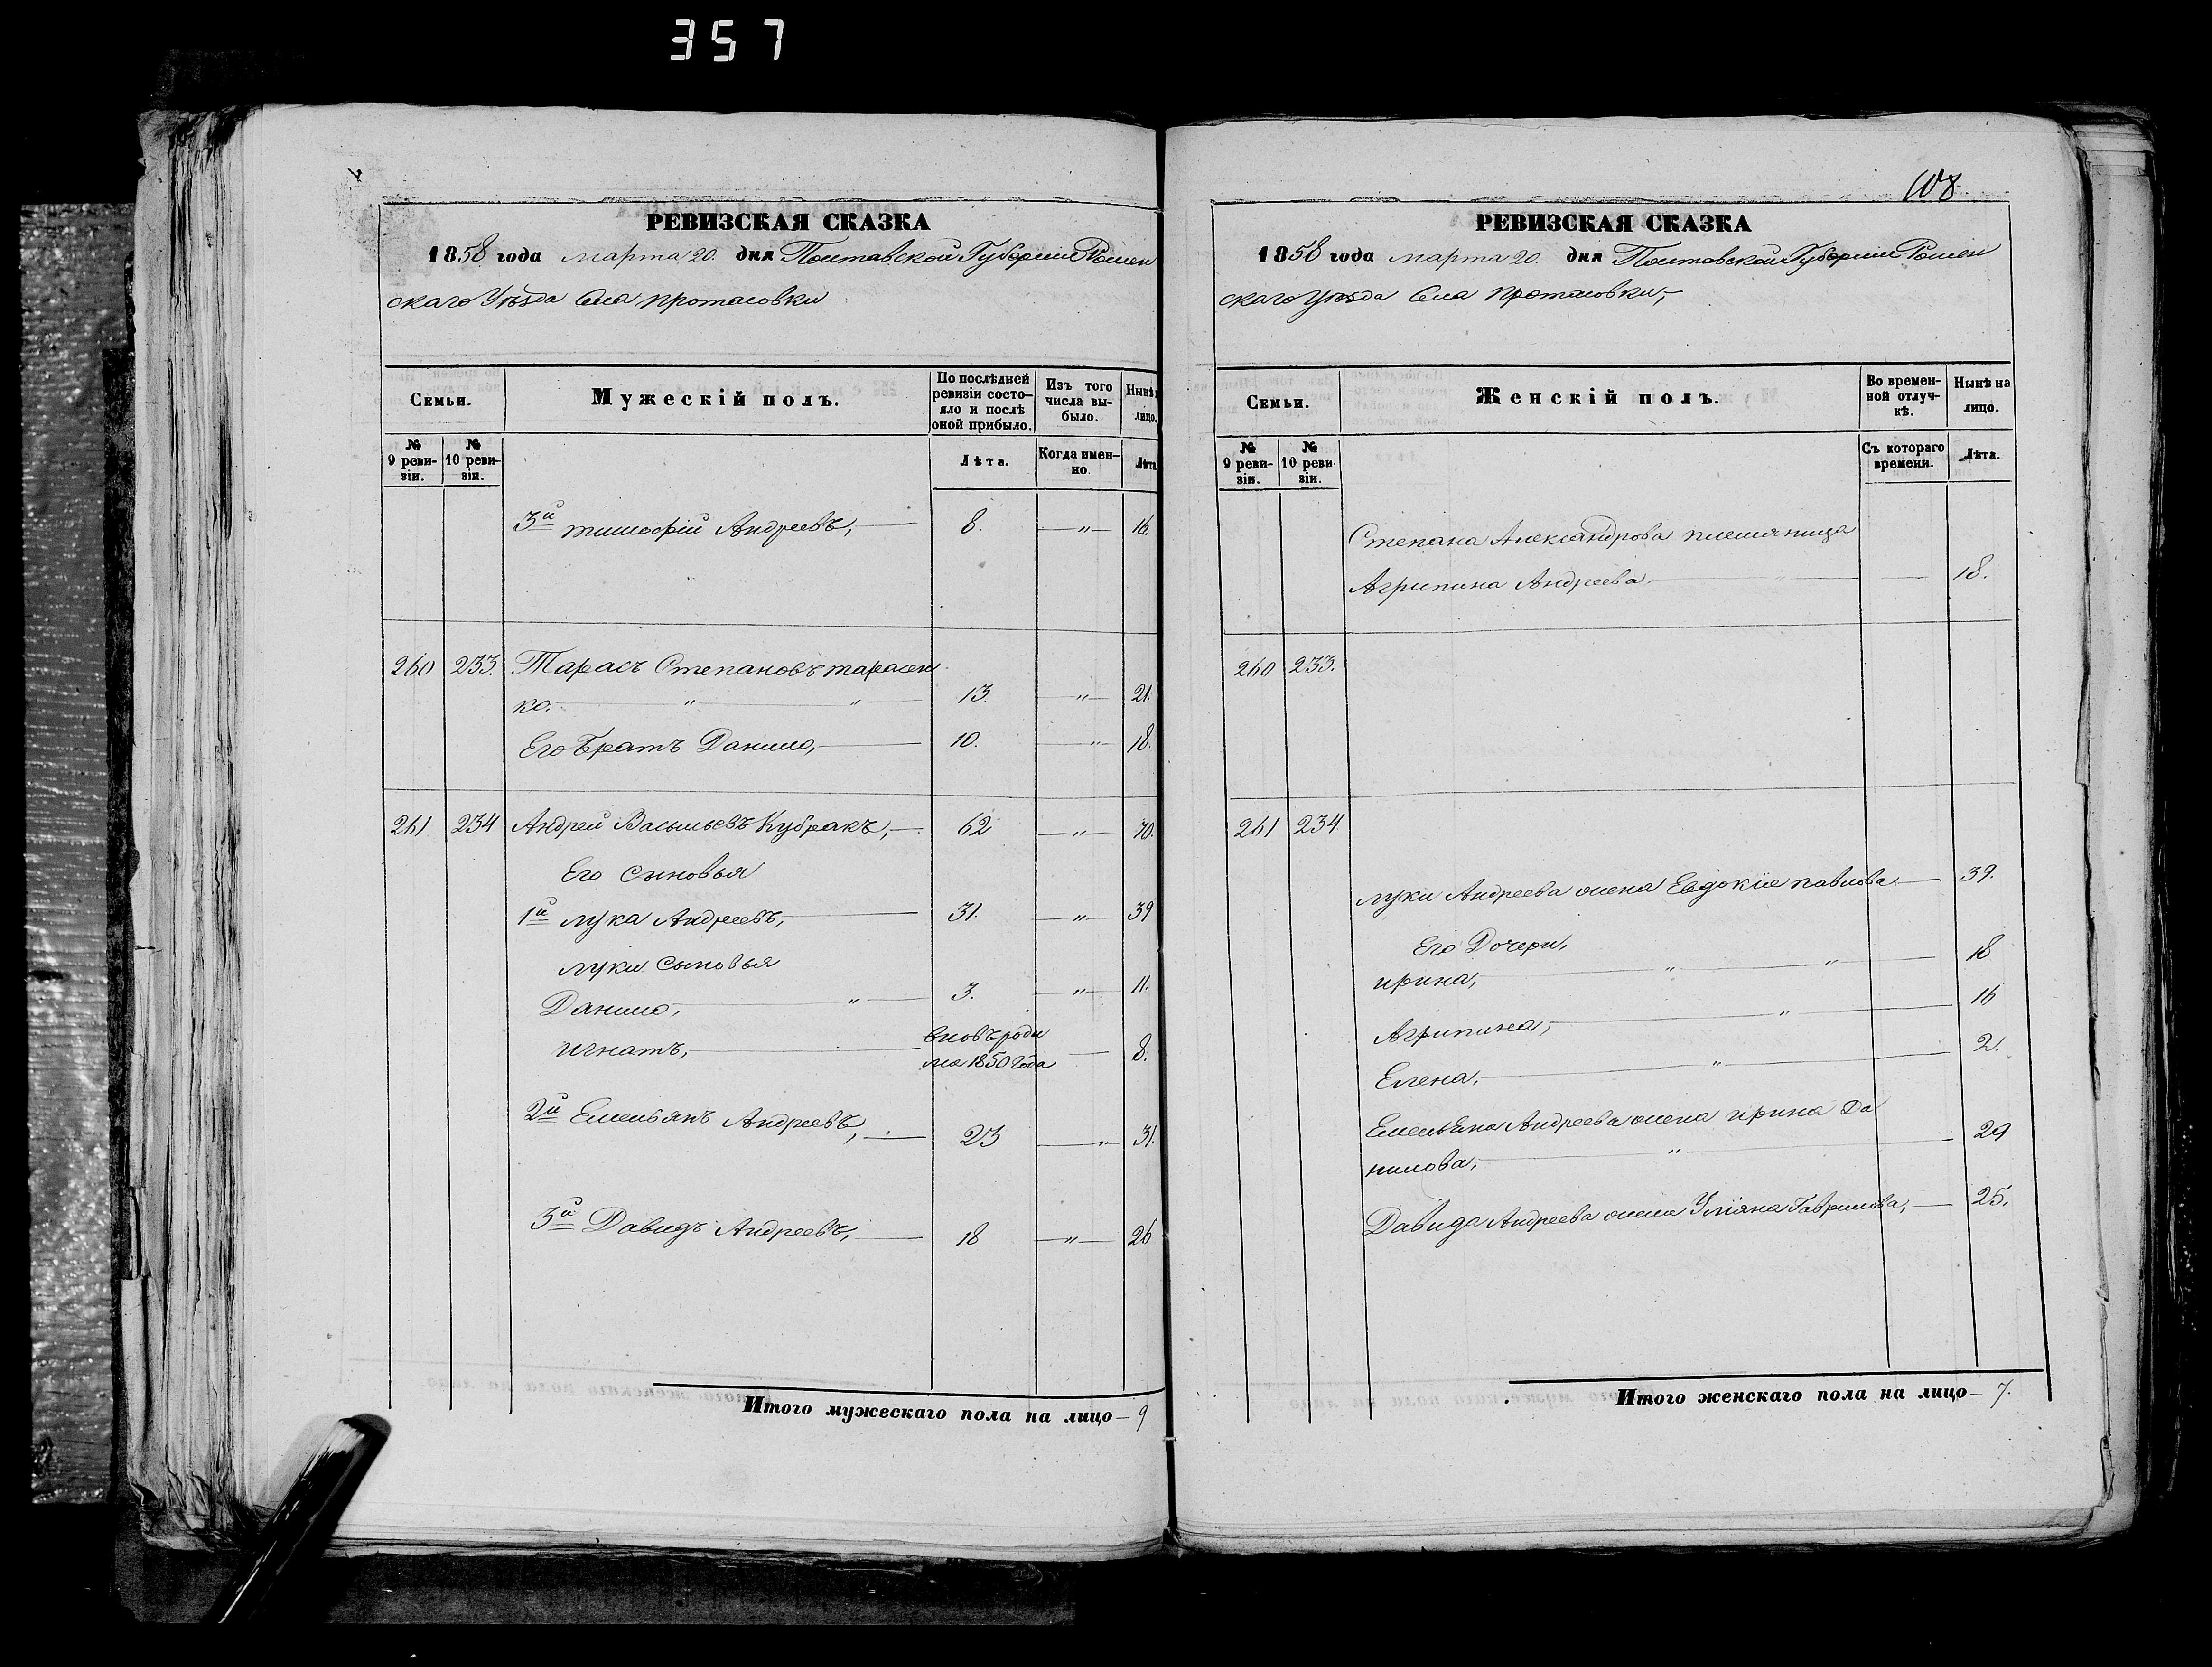 357
РЕВИЗСКАЯ СКАЗКА
1858 года марта 20. дня Полтавской Губернии Ромен
скаго Уѣзда Села протасовки
Семьи.
Мужескій полъ.
По послѣдней
ревизіи состо-
яло и послѣ
оной прибыло.
Изъ того
числа вы-
было.
Нынѣ
лицо.
№
9 реви-
зіи.
№
10 реви-
зіи.
Лѣта.
Когда имен-
но.
Лѣта
3й тимофій Андреевъ, 8. — " — 16.
260 233. Тарасъ Степановъ тарасен
ко. " " 13. — " — 21.
Его Братъ Данило, 10. — " — 18.
261 234 Андрей Васильевъ Кубракъ, 62 — " — 70.
Его сыновья
1й лука Андреевъ, 31. — " — 39
луки сыновья
Данило, " 3. — " — 11.
игнатъ, вновъ роди
ла 1850 года — 8.
2й Емельянъ Андреевъ, 23 — " — 31.
3й Давидъ Андреевъ, 18 — " — 26
Итого мужескаго пола на лицо — 9
108
РЕВИЗСКАЯ СКАЗКА
1858 года марта 20. дня Полтавской Губернии Ромен
скаго уѣзда Села протасовки,
Семьи.
Женскій полъ.
Во времен-
ной отлуч-
кѣ.
Нынѣ на
лицо.
№
9 реви-
зіи.
№
10 реви-
зіи.
Съ котораго
времени.
Лѣта.
Степана Александрова племянница
Агрипина Андреева. — 18.
260 233.
261 234
луки Андреева жена Евдокіе павлова — 39.
Его Дочери,
ирина, " " 18
Агрипина, " 16
Елена, " 2.
Емельяна Андреева жена ирина Да
нилова, " 29
Давида Андреева жена Уліяна Гаврилова, — 25.
Итого женскаго пола на лицо — 7.